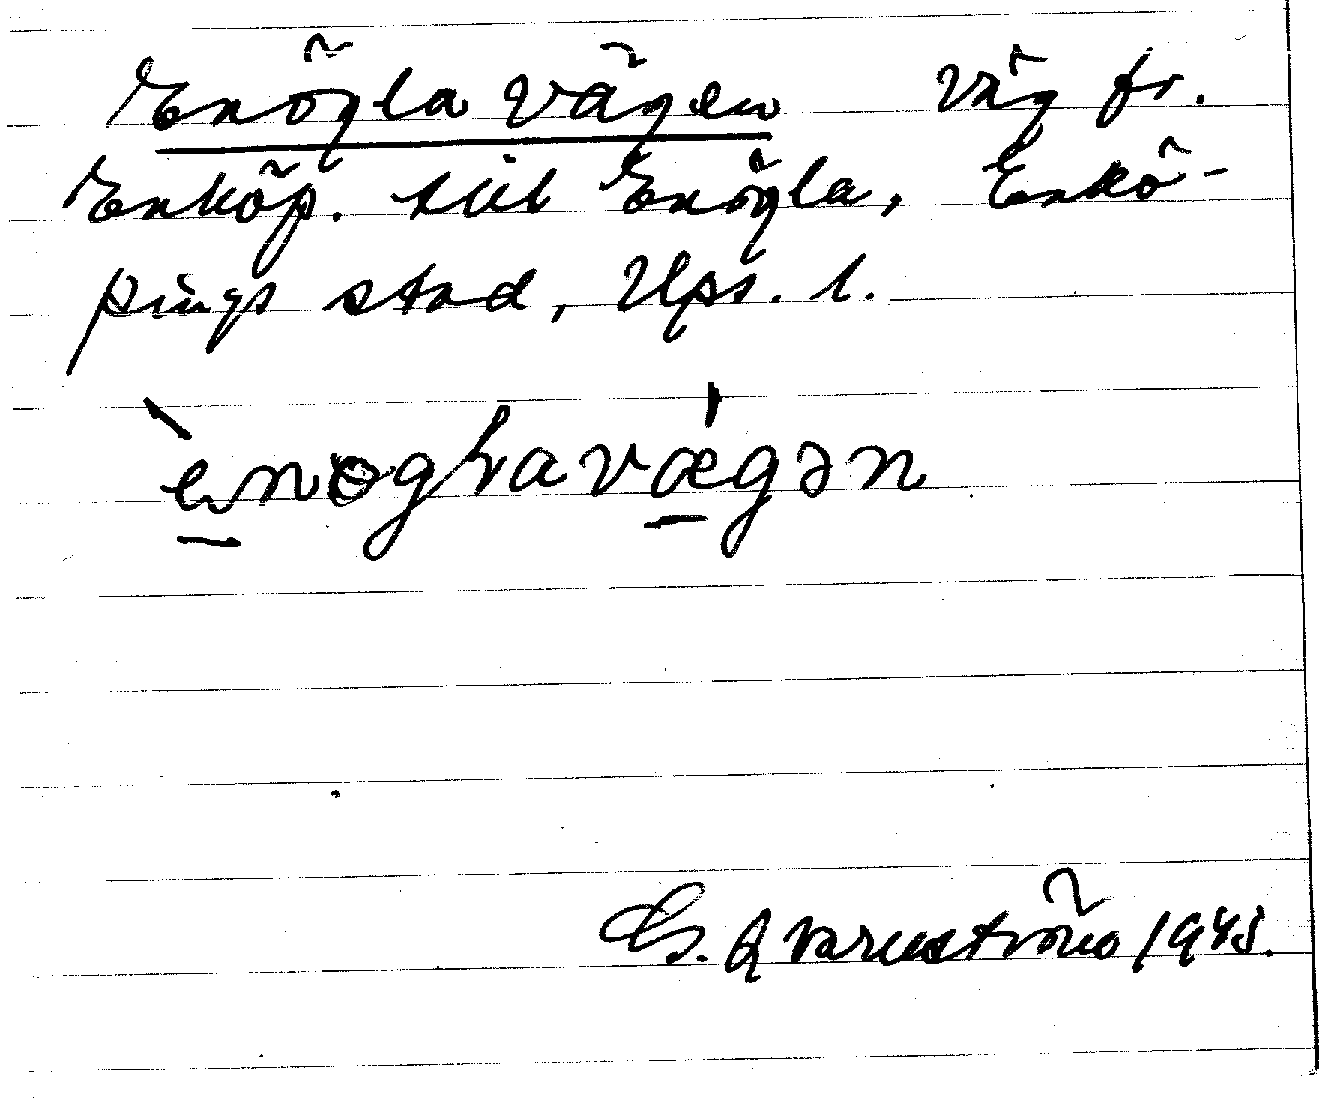 Enögla vägen Väg fr.
Enköp. till Enögla, Enkö-
pings stad, Ups. l.
ènøglavǽgən
G. Qvarnström 1945.